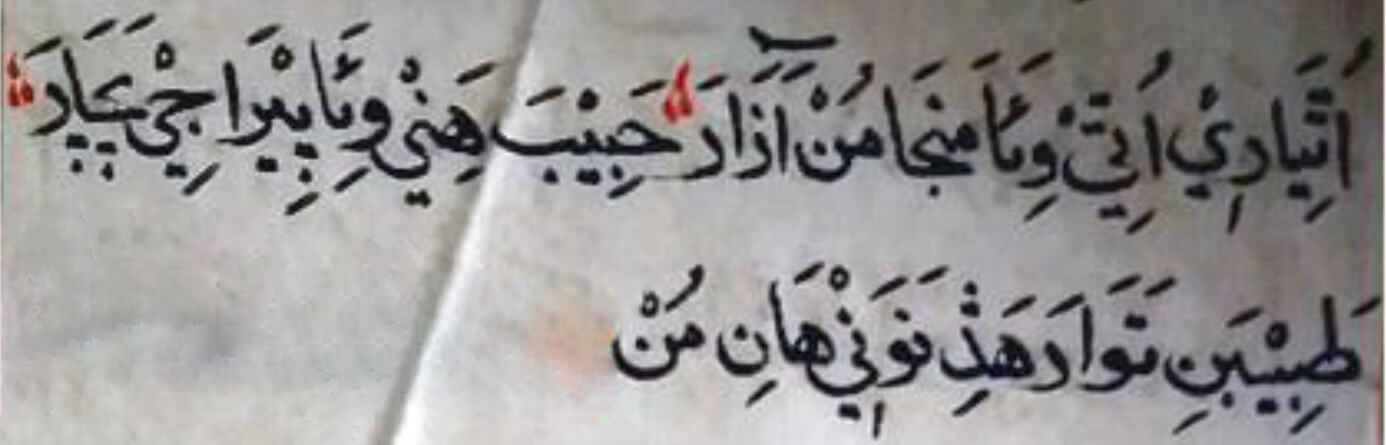 اُتِيَادِيْ اُتِيْ وِئَا مَنجَا مُنْ آزَارَ حَبِيْبَ هَنِيْ وِئَا پِيْرَا جِيْ پِيَارَ
طَبِيْبَنِ تَوَارَ هَڎِ نَوَنِيْ هَانِ مُنْ